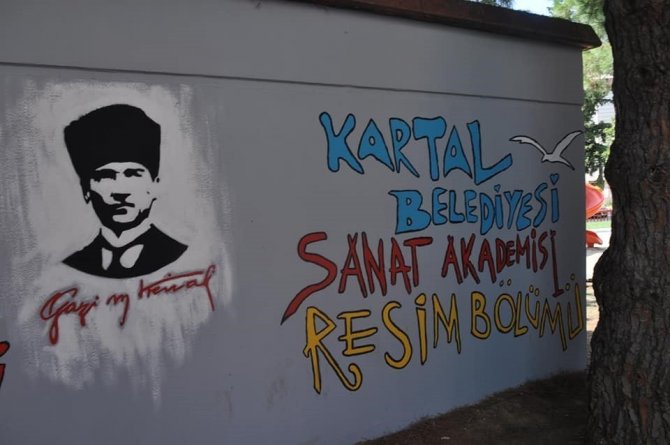 Gazi M Kemal
KARTAL
BELEDİYESİ
SANAT AKADEMİSİ
RESİM BÖLÜMÜ